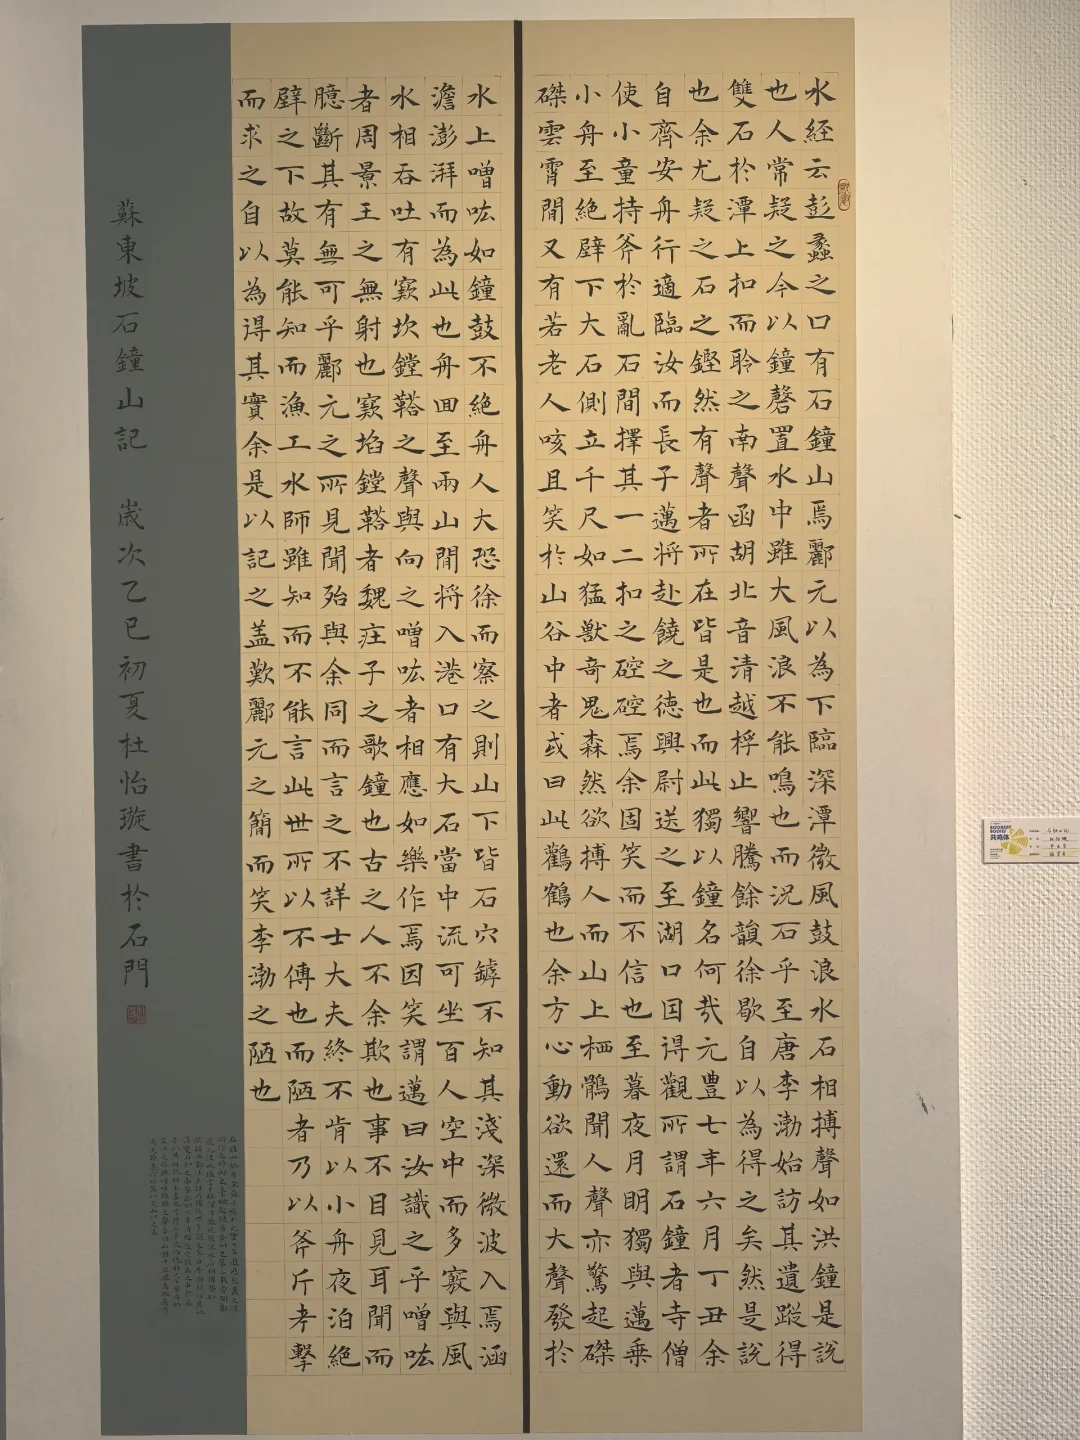 水経云彭蠡之口有石鐘山焉酈元以為下臨深潭微風鼓浪水石相搏聲如洪鐘是說
也人常疑之今以鐘磬置水中雖大風浪不能鳴也而況石乎至唐李渤始訪其遺蹤得
雙石於潭上扣而聆之南聲函胡北音清越桴止響騰餘韻徐歇自以為得之矣然是說
也余尤疑之石之鏗然有聲者所在皆是也而此獨以鐘名何哉元豐七年六月丁丑余
自齊安舟行適臨汝而長子邁將赴饒之德興尉送之至湖口因得觀所謂石鐘者寺僧
使小童持斧於亂石間擇其一二扣之硿硿焉余固笑而不信也至暮夜月明獨與邁乘
小舟至絕壁下大石側立千尺如猛獸奇鬼森然欲搏人而山上栖鶻聞人聲亦驚起磔
磔雲霄間又有若老人咳且笑於山谷中者或曰此鸛鶴也余方心動欲還而大聲發於
水上噌吰如鐘鼓不絕舟人大恐徐而察之則山下皆石穴罅不知其淺深微波入焉涵
澹澎湃而為此也舟回至兩山間將入港口有大石當中流可坐百人空中而多竅與風
水相吞吐有窾坎鏜鞳之聲與向之噌吰者相應如樂作焉因笑謂邁曰汝識之乎噌吰
者周景王之無射也窾埳鏜鞳者魏莊子之歌鐘也古之人不余欺也事不目見耳聞而
臆斷其有無可乎酈元之所見聞殆與余同而言之不詳士大夫終不肯以小舟夜泊絕
壁之下故莫能知而漁工水師雖知而不能言此世所以不傳也而陋者乃以斧斤考擊
而求之自以為得其實余是以記之蓋歎酈元之簡而笑李渤之陋也
蘇東坡石鐘山記 歲次乙巳初夏杜怡璇書於石門
共鳴体